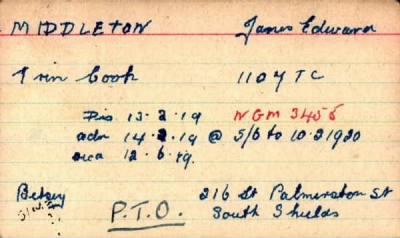 MIDDLETON James Edward
Cook 1104 TC
Dis 13.2.19 NGM 3455
adm 14.2.19 @ 5/6 to 10.2.1920
12.6.19.
Betsy
216 St Palmerston St
P.T.O. South Shields